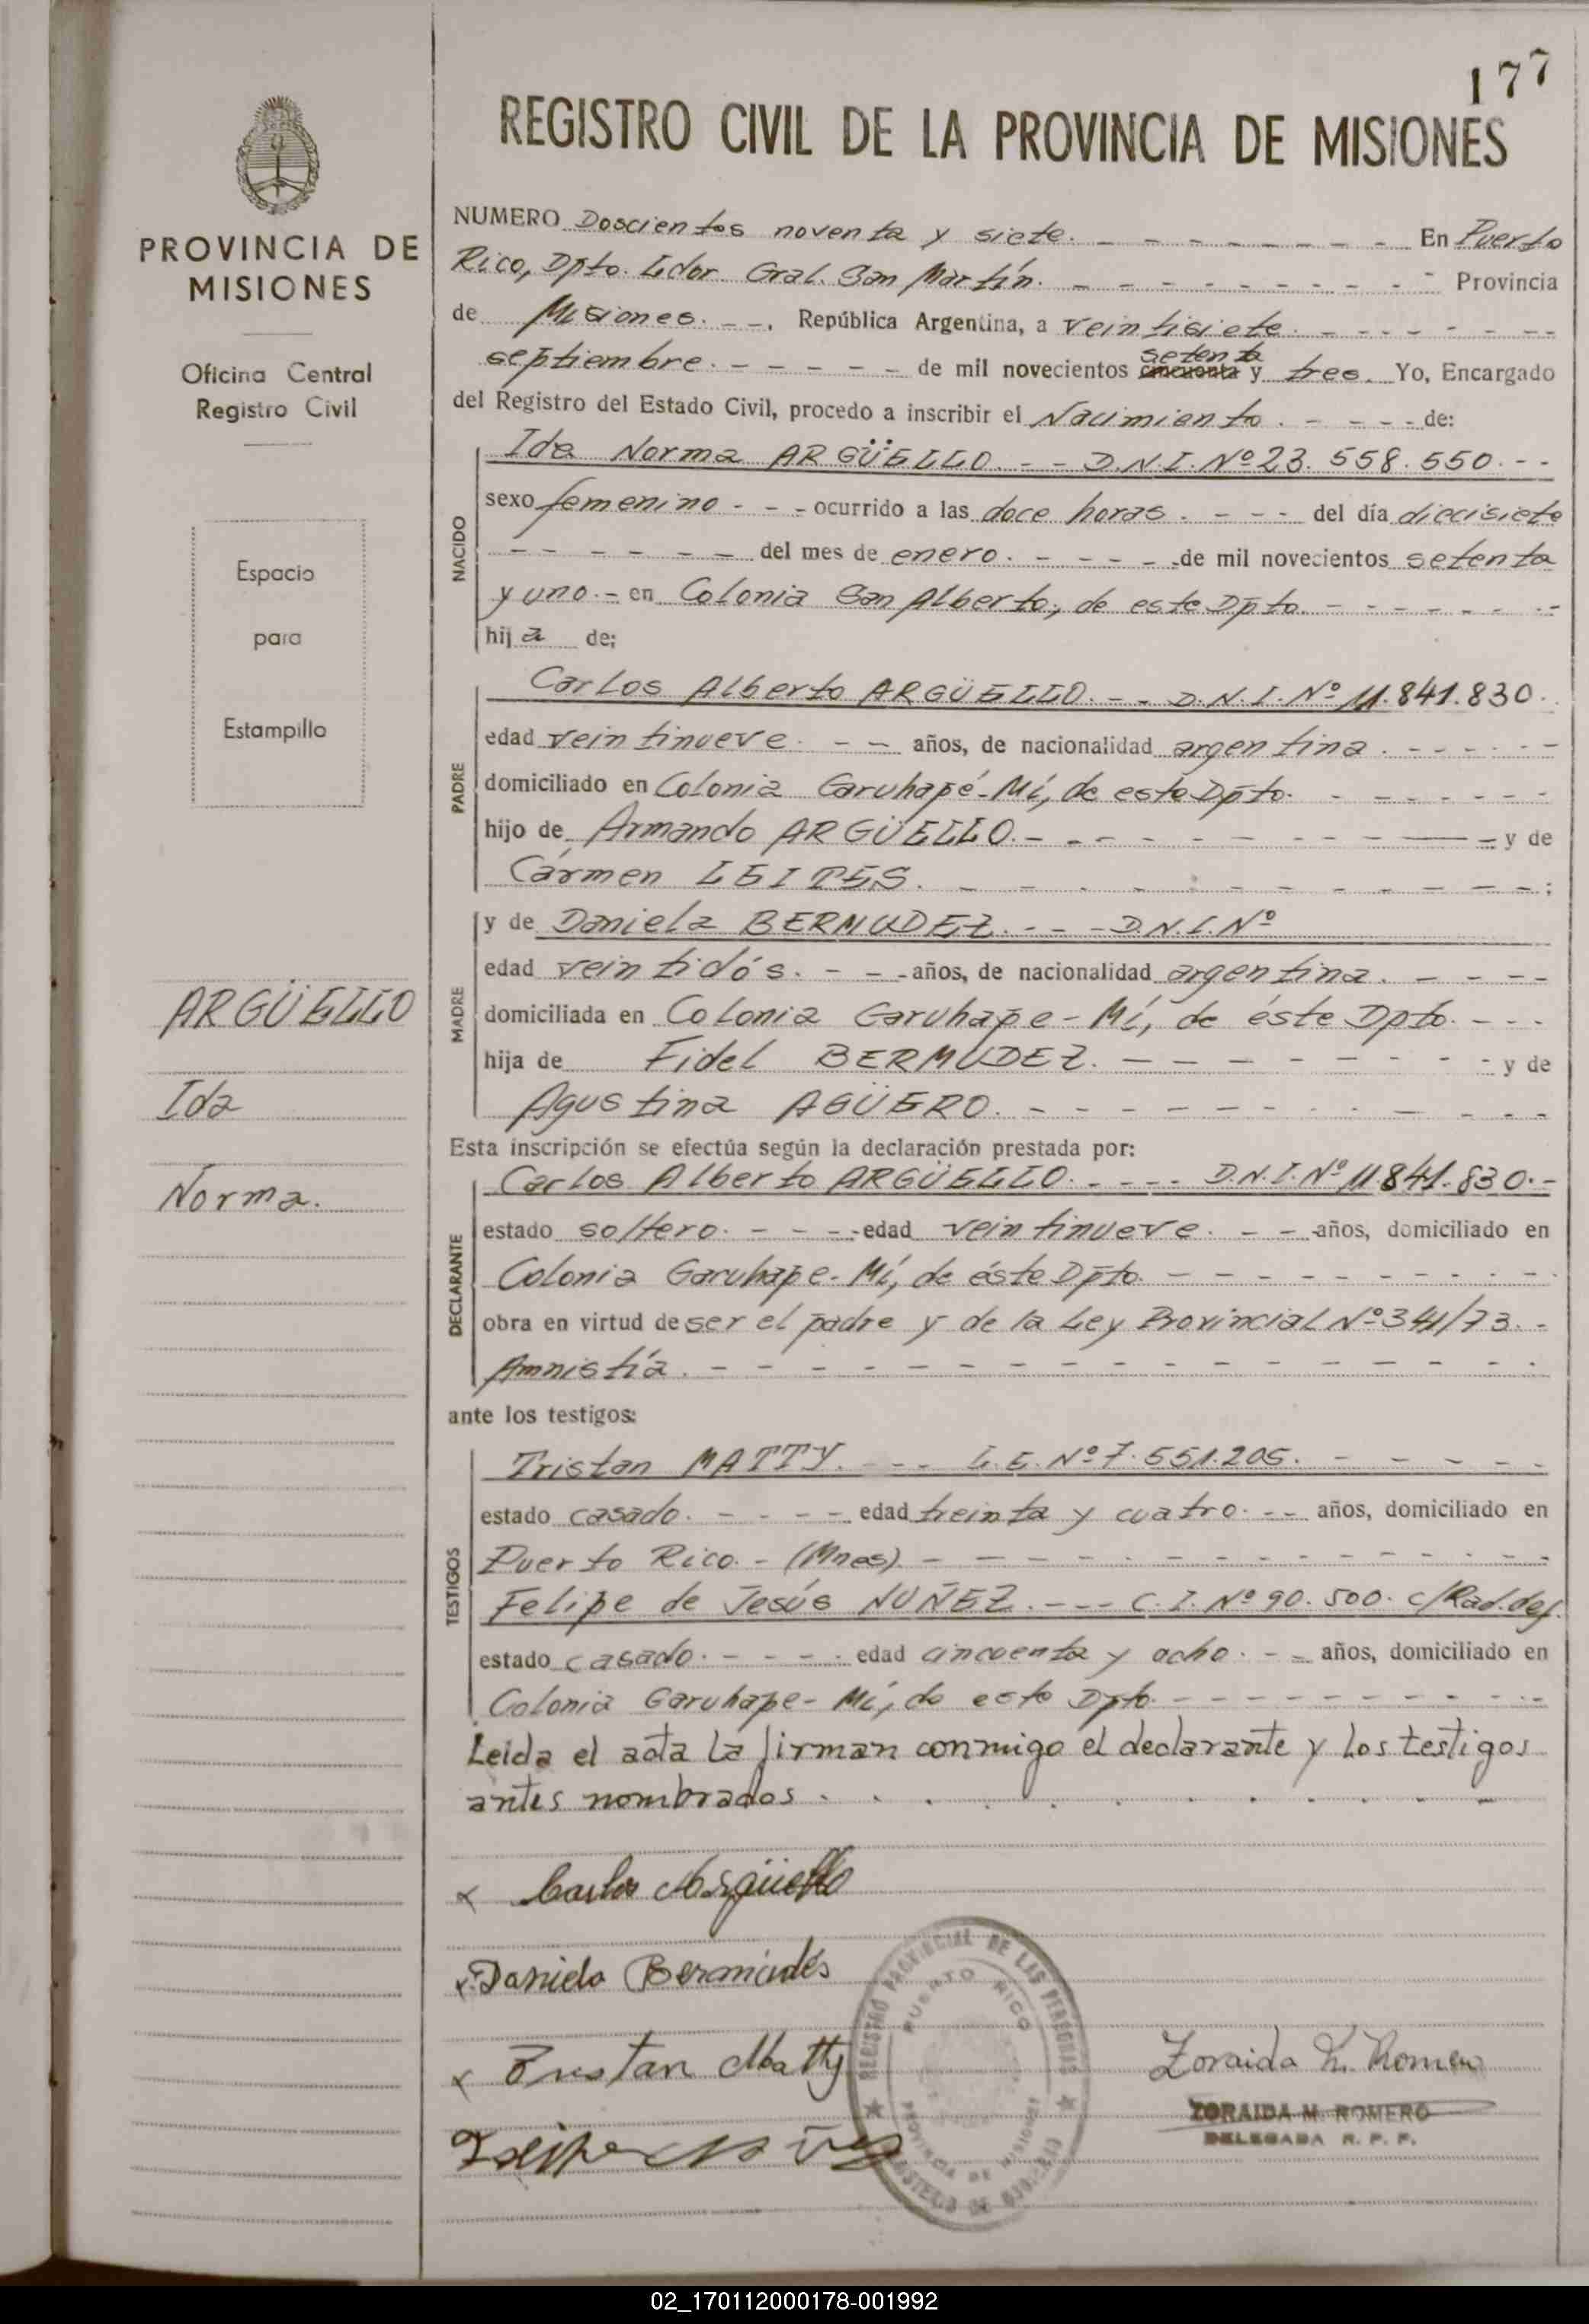 177
REGISTRO CIVIL DE LA PROVINCIA DE MISIONES
PROVINCIA DE
MISIONES
Oficina Central
Registro Civil
Espacio
para
Estampillo
ARGÜELLO
Ida
Norma.
NUMERO Doscientos noventa y siete. - - - - - - - En Puerto
Rico, Dpto. Ldor Gral. San Martín. - - - - - - - - - Provincia
de Misiones. - -. República Argentina, a veintisiete. - - - - - - -
septiembre. - - - - - de mil novecientos setenta cincuenta y tres. Yo, Encargado
del Registro del Estado Civil, procedo a inscribir el Nacimiento. - - - - de:
NACIDO
Ida Norma ARGÜELLO. - - D.N.I. Nº 23.558.550. - -
sexo femenino - - - ocurrido a las doce horas. - - - - del día diecisiete
- - - - - - del mes de enero. - - - - - de mil novecientos setenta
y uno. - en Colonia San Alberto, de este Dpto. - - - - - - -
hija de:
PADRE
Carlos Alberto ARGÜELLO. - - D.N.I. Nº 11.841.830.
edad veintinueve. - - años, de nacionalidad argentina. - - - - - -
domiciliado en Colonia Garuhapé-Mí, de este Dpto. - - - - - - -
hijo de Armando ARGÜELLO. - - - - - - - - - y de
Cármen LEITES. - - - - - - - - - - - ;
MADRE
y de Daniela BERMUDEZ. - - - D.N.I. Nº
edad veintidós. - - - años, de nacionalidad argentina. - - - -
domiciliada en Colonia Garuhape-Mí, de éste Dpto. - - -
hija de Fidel BERMUDEZ. - - - - - - - - - y de
Agustina AGÜERO. - - - - - - - - - - - -
Esta inscripción se efectúa según la declaración prestada por:
DECLARANTE
Carlos Alberto ARGÜELLO. - - - - D.N.I. Nº 11.841.830. -
estado soltero. - - - - edad veintinueve. - - - años, domiciliado en
Colonia Garuhape-Mí, de éste Dpto. - - - - - - - - -
obra en virtud de ser el padre y de la Ley Provincial Nº 341/73. -
Amnistía. - - - - - - - - - - - - - - - - -
ante los testigos:
TESTIGOS
Tristan MATTY. - - - L.E. Nº 7.551.205. - - - - -
estado casado. - - - - edad treinta y cuatro. - - años, domiciliado en
Puerto Rico. - (Mnes). - - - - - - - - - - - - -
Felipe de Jesús NUÑEZ. - - - C.I. Nº 90.500. c/Rad.def.
estado casado. - - - - edad cincuenta y ocho. - - años, domiciliado en
Colonia Garuhape-Mí, de este Dpto. - - - - - - - - -
Leida el acta la firman conmigo el declarante y los testigos
antes nombrados. . . . . . . . . -
x Carlos Argüello
x Daniela Bermúdes
x Tristan Matty
Felipe Nuñez
REGISTRO PROVINCIAL DE LAS PERSONAS
PUERTO RICO
PROVINCIA DE MISIONES
MINISTERIO DE GOBIERNO
Zoraida M. Romero
ZORAIDA M. ROMERO
DELEGADA R. P. P.
02_170112000178-001992